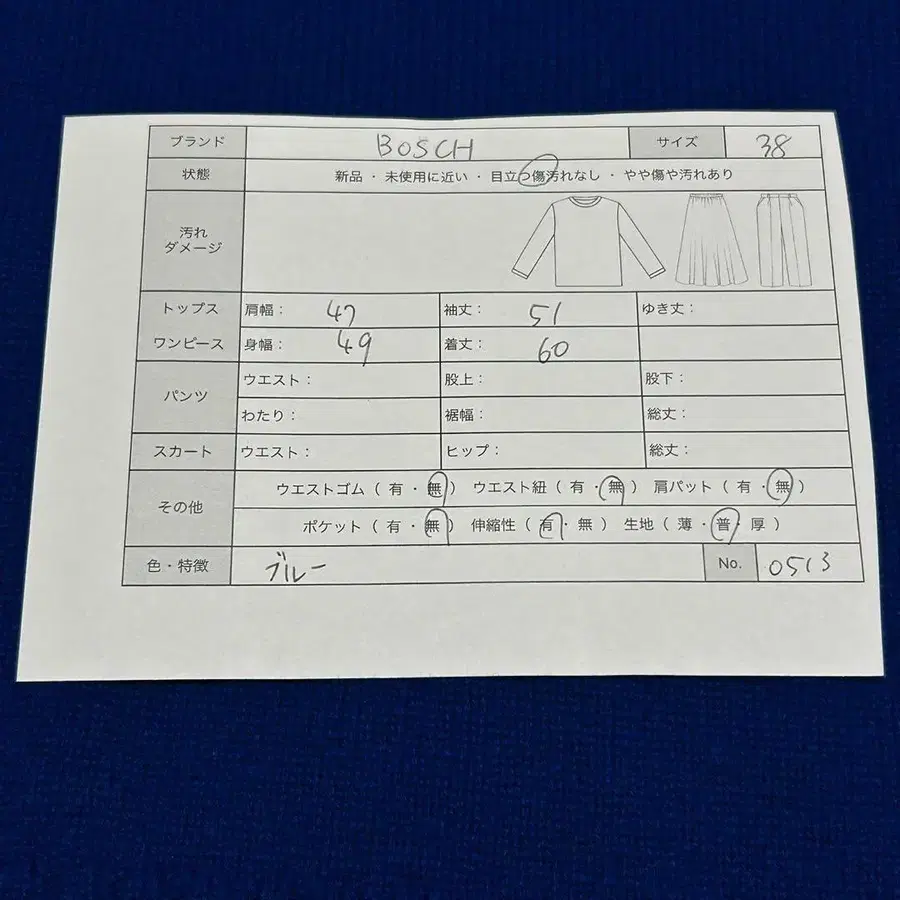 ブランド BOSCH サイズ 38
状態 新品 ・ 未使用に近い ・ 目立つ傷汚れなし ・ やや傷や汚れあり
汚れ
ダメージ
トップス 肩幅： 47 袖丈： 51 ゆき丈：
ワンピース 身幅： 49 着丈： 60
パンツ
ウエスト： 股上： 股下：
わたり： 裾幅： 総丈：
スカート ウエスト： ヒップ： 総丈：
その他
ウエストゴム（ 有 ・ 無 ） ウエスト紐（ 有 ・ 無 ） 肩パット（ 有 ・ 無 ）
ポケット（ 有 ・ 無 ） 伸縮性（ 有 ・ 無 ） 生地（ 薄 ・ 普 ・ 厚 ）
色・特徴 ブルー No. 0513